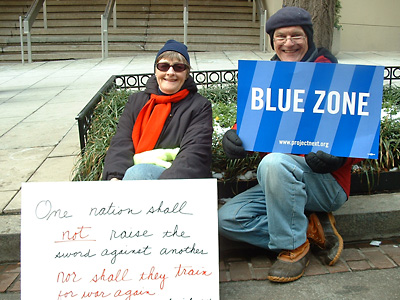 BLUE ZONE
www.projectnext.org
One nation shall
not raise the
sword against another
nor shall they train
for war again